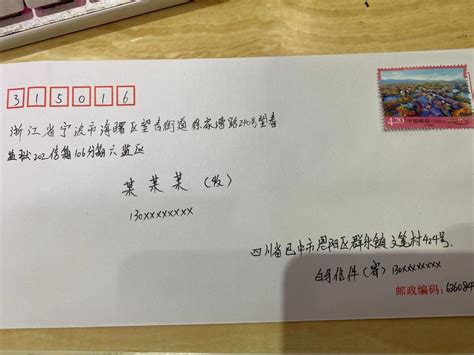 315016
4.20 中国邮政 CHINA
浙江省宁波市海曙区望春街道徐家漕路240号望春
监狱202信箱106分箱六监区
某某某（收）
130xxxxxxxx
四川省巴中市恩阳区群乐镇文笔村424号
信件（寄）130xxxxxxxx
邮政编码：636084